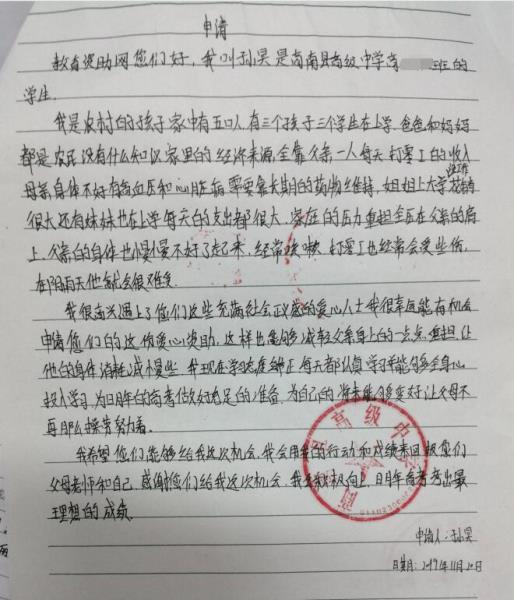 申请
教育资助网您们好，我叫孙昊是商南县高级中学高 班的
学生。
我是农村的孩子家中有五口人有三个孩子三个学生在上学。爸爸和妈妈
都是农民没有什么知识家里的经济来源全靠父亲一人每天打零工的收入
母亲身体不好有高血压和心脏病需要靠长期的药物维持，姐姐上大学花销
很大还有妹妹也在上学每天的支出都很大，家庭的压力重担全压在父亲的肩
上，父亲的身体也慢慢不好了起来，经常咳嗽，打零工也经常会受些伤，
在阴雨天他就会很难受。
我很高兴遇上了您们这些充满社会正义感的爱心人士我很幸运能有机会
申请您们的这份爱心资助，这样也能够减轻父亲身上的一点点重担，让
他的身体消耗减慢些，我现在学习态度端正每天都认真学习并能够多全身心
投入学习，为明年的高考做好充足的准备，为自己的将来能够变好让父母不
再那么操劳努力着。
我希望您们能够给我这次机会，我会用我的行动和成绩来回报您们
父母老师和自己，感谢您们给我这次机会，我会积极向上，明年高考考出最
理想的成绩
申请人：孙昊
日期：2019年11月20日
高级中